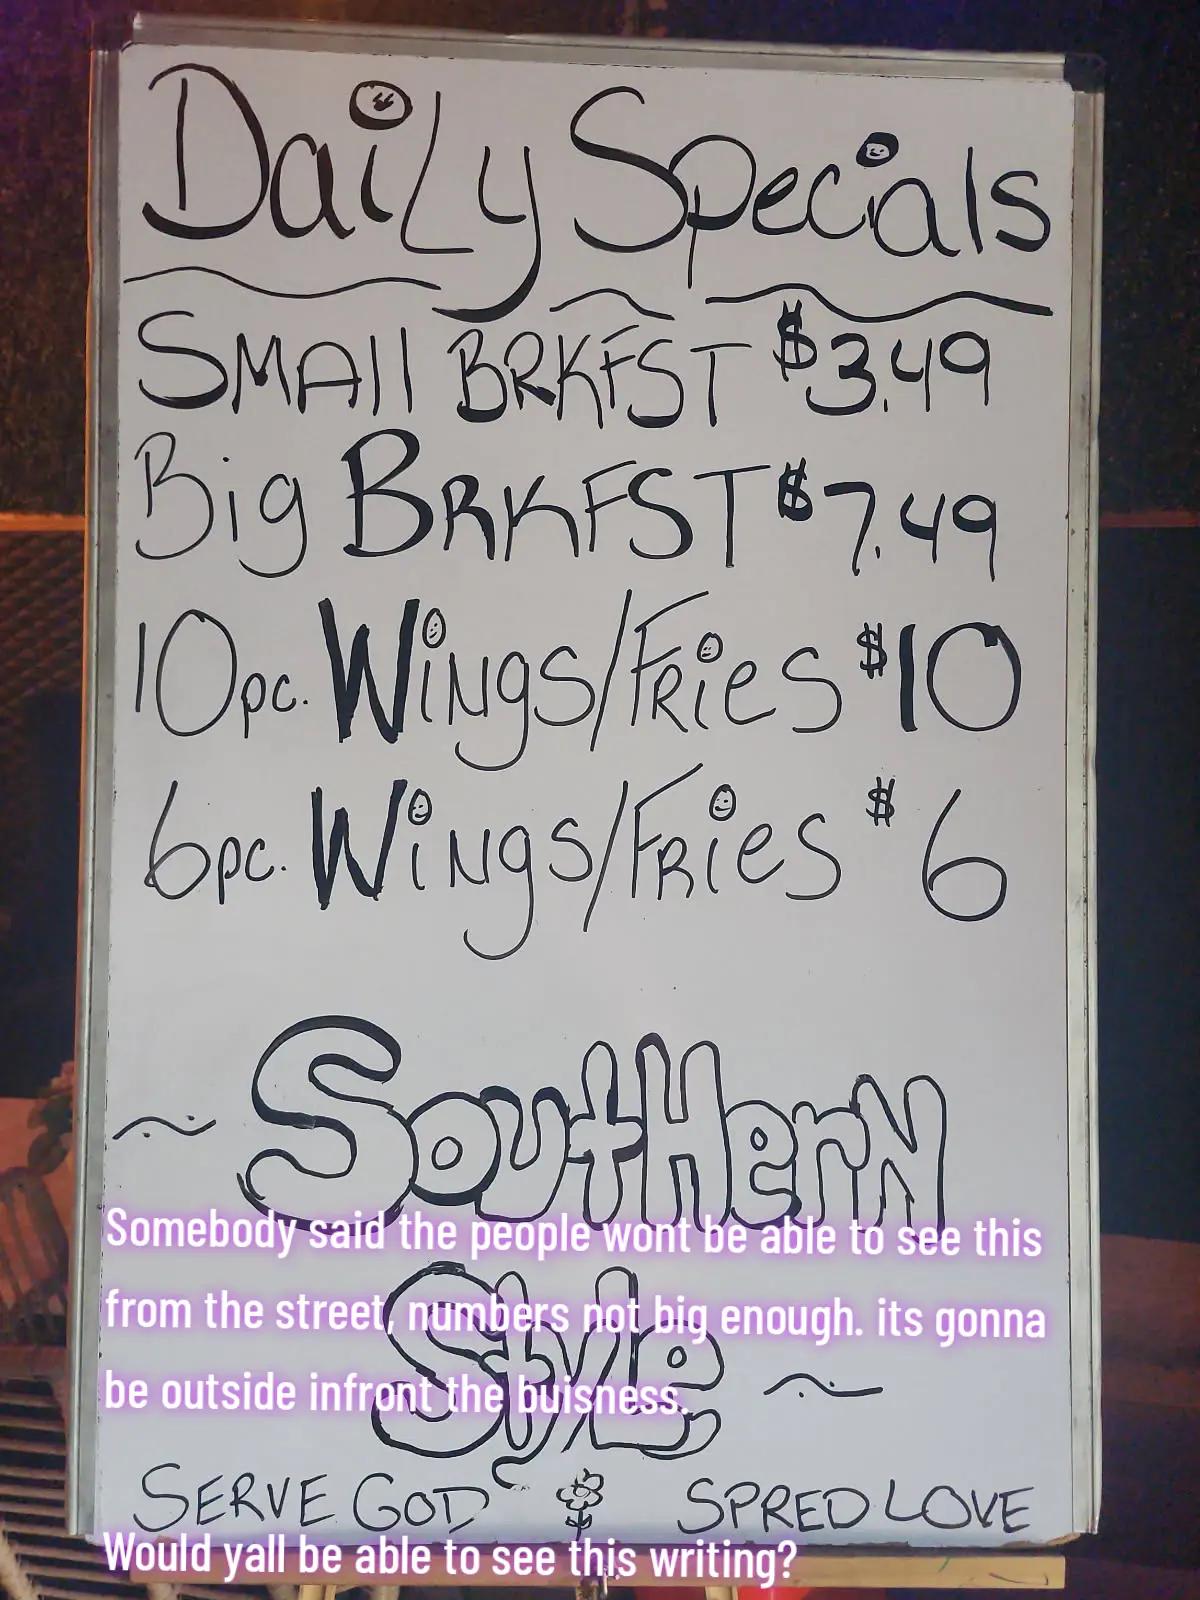 Daily Specials
SMAll BRKFST $3.49
Big BRKFST $7.49
10pc. WiNgS/FRieS $10
6pc. WiNgS/FRieS $6
SoutHerN
Somebody said the people wont be able to see this
from the street, numbers not big enough. its gonna
Style
be outside infront the buisness.
SERVE GOD SPRED LOVE
Would yall be able to see this writing?